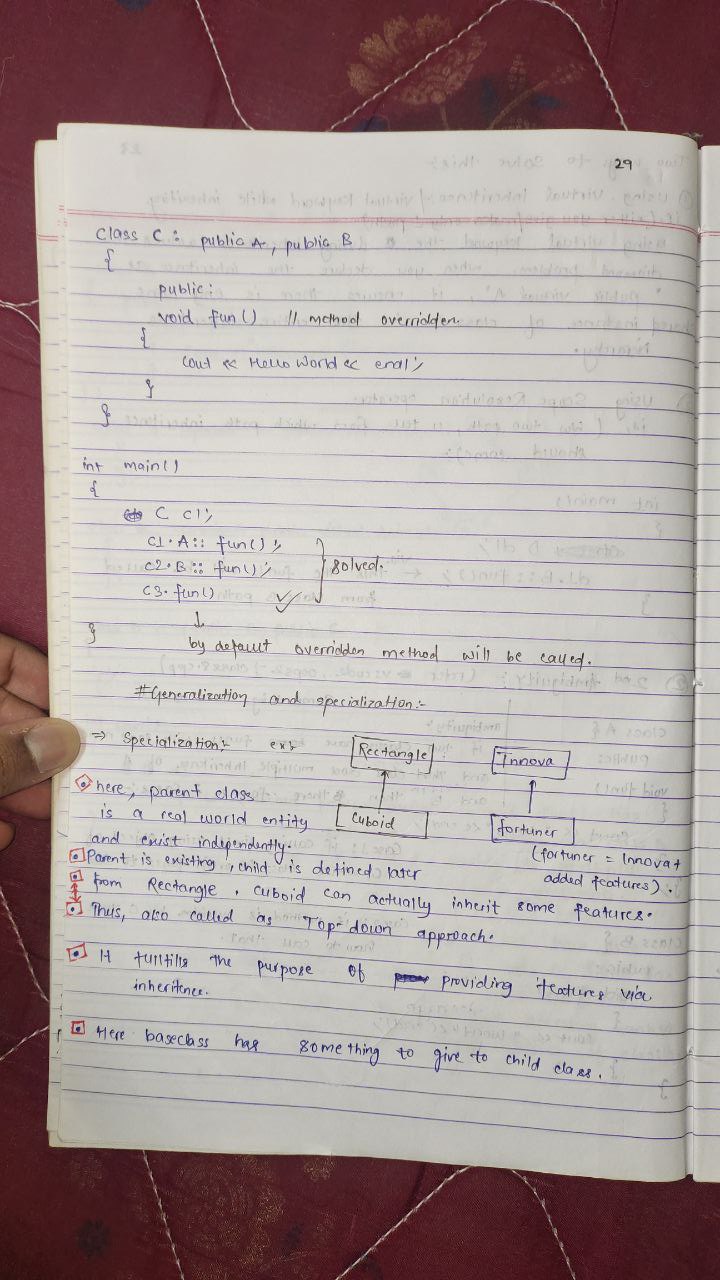 29
class C : public A, public B
{
public:
void fun() // method overridden.
{
cout << Hello World << endl;
}
}
int main()
{
C c1;
c1.A:: fun();
c2.B:: fun();
c3.fun()
} solved.
↓
}
by default overridden method will be called.
#Generalization and specialization:-
⇒ Specialization:- ex:
Rectangle
Innova
Cuboid
fortuner
here, parent class
is a real world entity
and exist independently.
(fortuner = Innova +
added features).
Parent is existing, child is defined later
From Rectangle, cuboid can actually inherit some features.
Thus, also called as Top-down approach.
It fullfills the purpose of providing features via
inheritence.
Here baseclass has something to give to child class.